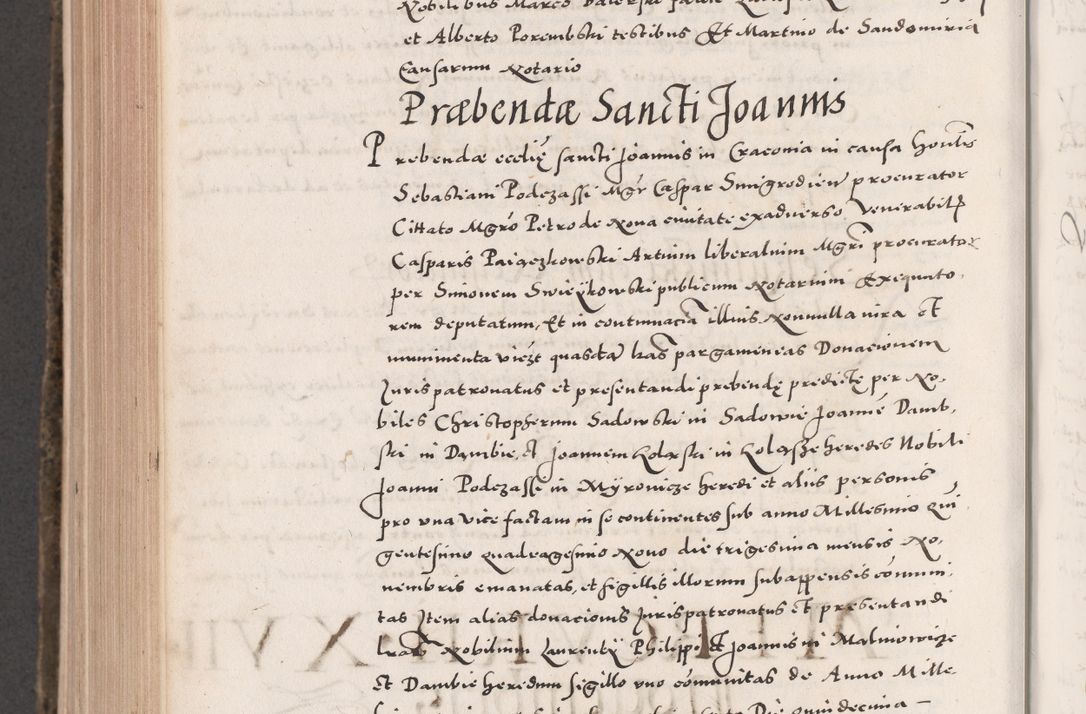 et Alberto Porembski testibus Et Martino de Sandomiria
Causarum Notario
Præbendæ Sancti Joannis
Prebendæ ecclię sancti Joannis in Cracovia in causa honilis
Sebastiani Podczassi Mgr Caspar Smigrodien procurator
Cittato Mgro Petro de Nova civitate ex adverso Venerabilis
Casparis Paięczkowski Artium liberalium Mgri procurator
per Simonem Swieykowski publicum Notarium Exequuto-
rem deputatum, Et in contumacia illius Nonnulla iura et
munimenta viczt quasdam lras pargameneas Donacionem
Jurispatronatus et presentandi prebendę predictę per No-
biles Christopherum Sadowski in Sadowie Joannē Damb-
ski in Dambie, et Joannem Kolarski in heredes Nobili
Joanni Podczasse in heredi et aliis personis
pro una vice factam in se continentes sub anno Millesimo Qui
gentesimo quadragesimo Nono die trigesima mensis No-
vembris emanatas, et sigillis illorum subappensis cōmuni-
tas Item alias donacionis Jurispatronatus et presentandi
lras Nobilium Laurenty Philippi et Joannis in
et Dambie heredum sigillo uno cōmunitas de Anno Mille-
Die quindecima